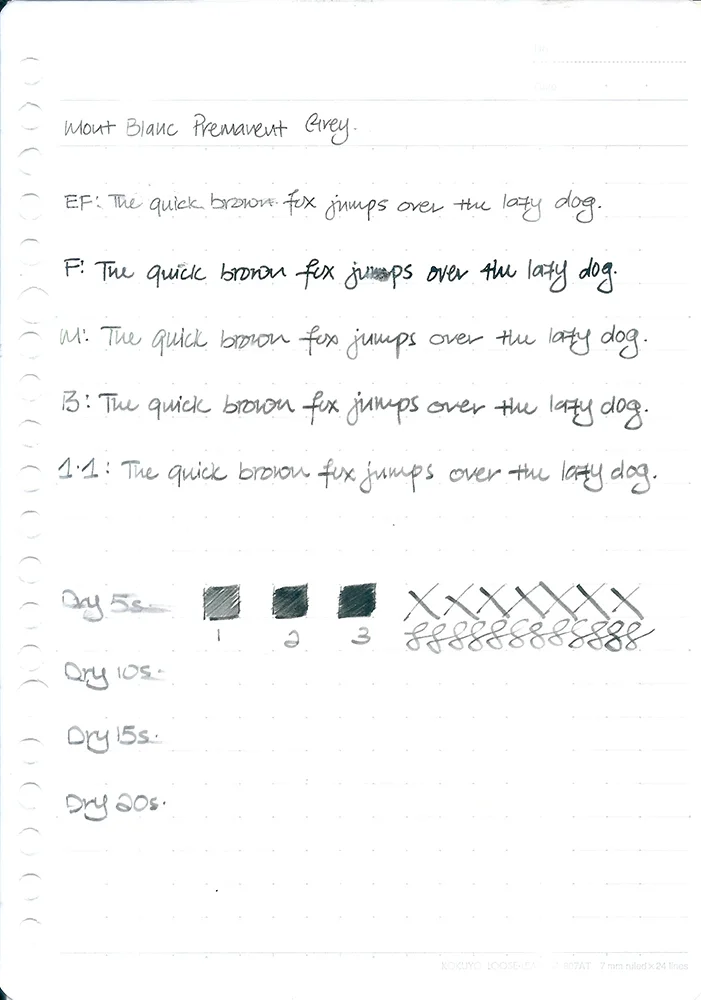 No.
Date
Mont Blanc Premanent Grey.
EF: The quick brown fox jumps over the lazy dog.
F: The quick brown fox jumps over the lazy dog.
M: The quick brown fox jumps over the lazy dog.
B: The quick brown fox jumps over the lazy dog.
1.1: The quick brown fox jumps over the lazy dog.
Dry 5s.
1 2 3
8 8 8 8 8 8 8 8 8 8 8 8 8 8
Dry 10s.
Dry 15s.
Dry 20s.
KOKUYO 7 mm ruled × 24 lines